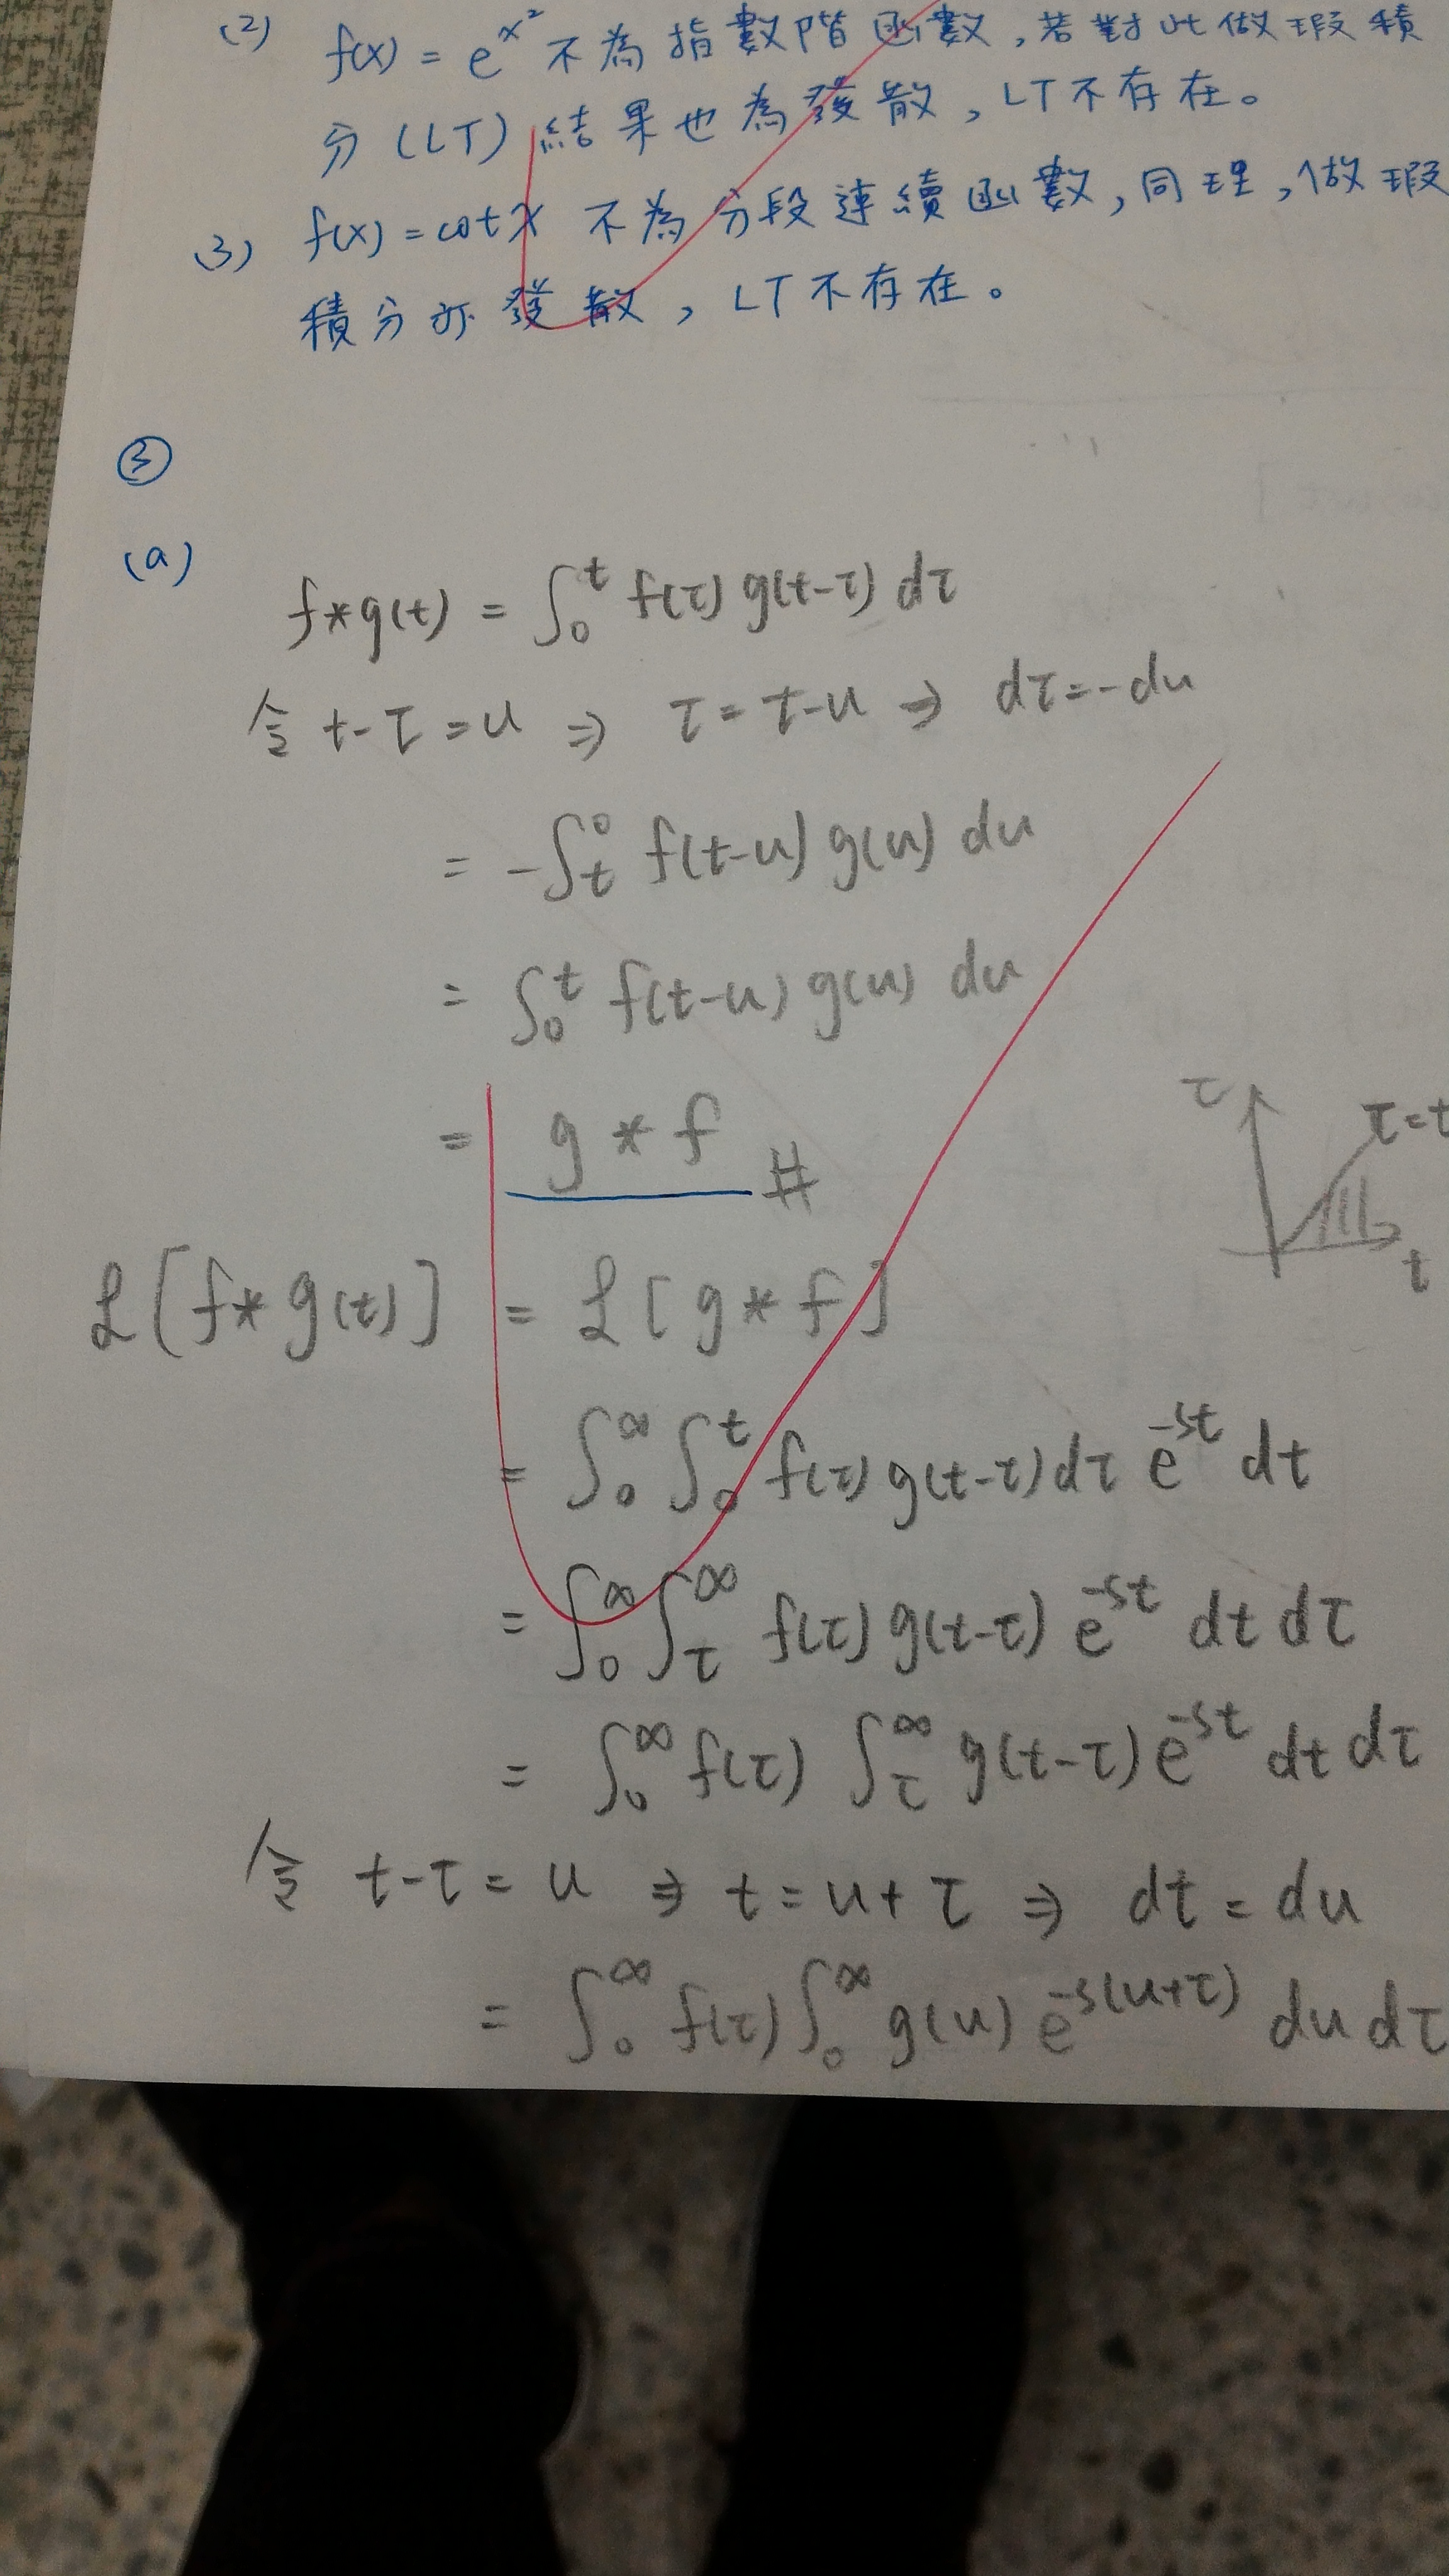 (2) f(x) = e^x² 不為指數階函數,若對此做瑕積
分(LT)結果也為發散,LT不存在。
(3) f(x) = cot x 不為分段連續函數,同理,做瑕
積分亦發散,LT不存在。
③
(a)
f*g(t) = ∫₀^t f(τ) g(t-τ) dτ
令 t-τ = u ⇒ τ = t-u ⇒ dτ = -du
= -∫_t^0 f(t-u) g(u) du
= ∫₀^t f(t-u) g(u) du
= g * f #
τ
τ=t
t
ℒ[f*g(t)] = ℒ[g*f]
= ∫₀^∞ ∫₀^t f(τ) g(t-τ) dτ e^-st dt
= ∫₀^∞ ∫_τ^∞ f(τ) g(t-τ) e^-st dt dτ
= ∫₀^∞ f(τ) ∫_τ^∞ g(t-τ) e^-st dt dτ
令 t-τ = u ⇒ t = u+τ ⇒ dt = du
= ∫₀^∞ f(τ) ∫₀^∞ g(u) e^-s(u+τ) du dτ